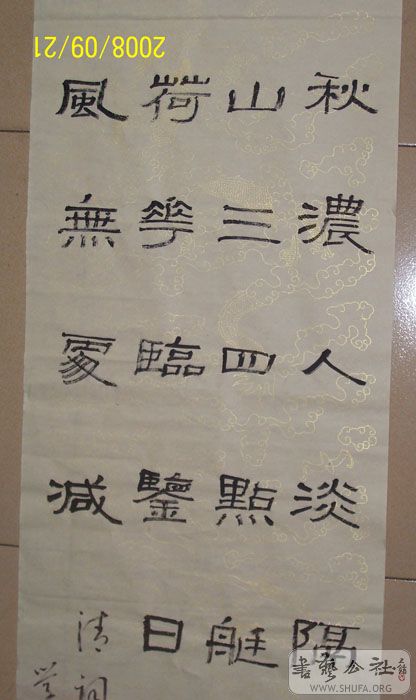 秋濃人淡隔
山三四點艇
荷華臨鑒日
風無處減
清詞
2008/09/21
書藝公社
WWW.SHUFA.ORG